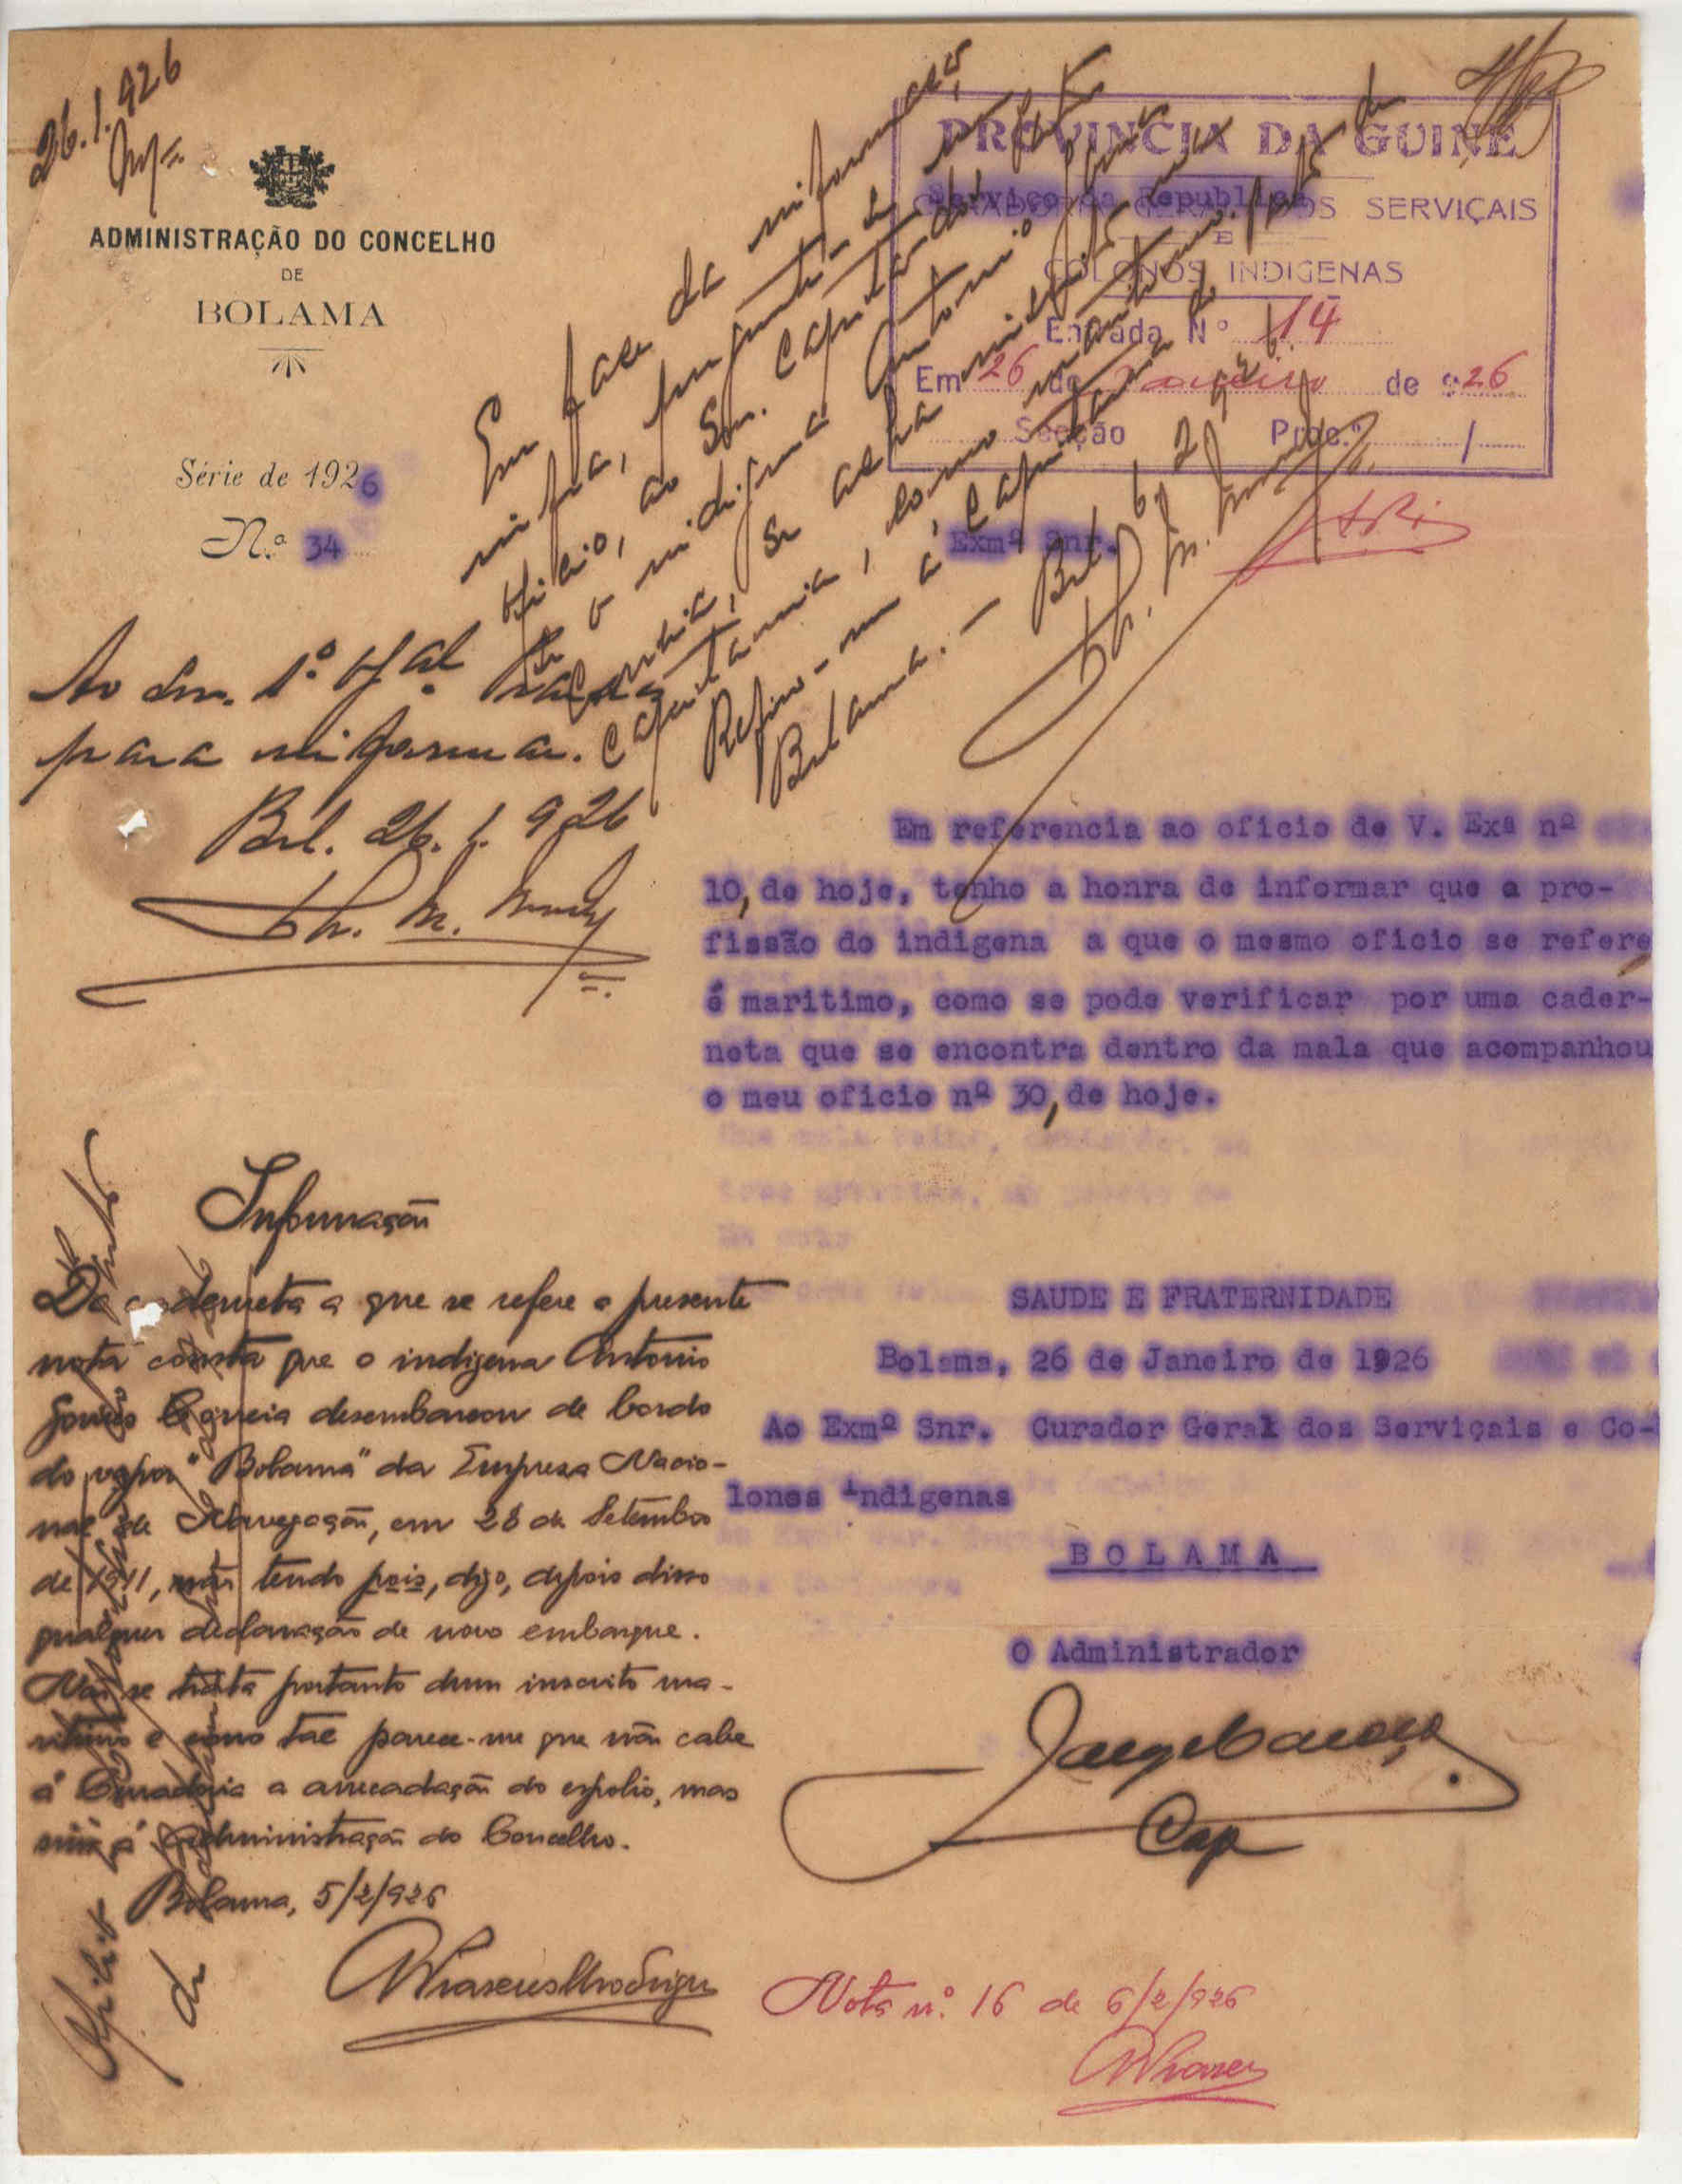 26.1.926
ADMINISTRAÇÃO DO CONCELHO
DE
BOLAMA
Série de 1926
N.º 34
PROVINCIA DA GUINÉ
Serviço da Republica
SERVIÇAIS
E
COLONOS INDIGENAS
Entrada Nº 114
Em 26 de Janeiro de 926
Secção Proc.º /
Exmº Snr.
Em face da informação
infra, pergunte-se em
oficio, ao Snr. Capitão dos Portos
se o indigena Antonio Gomes
Correia, se acha inscrito na
Capitania, como maritimo.
Refiro-me á Capitania do Porto de
Bolama. — Bol. 6, 2, 926.
Ao Snr. 1º Ofal
para informar.
Bol. 26.1.926
Em referencia ao oficio de V. Exª nº
10, de hoje, tenho a honra de informar que a pro-
fissão do indigena a que o mesmo oficio se refere
é maritimo, como se pode verificar por uma cader-
neta que se encontra dentro da mala que acompanhou
o meu oficio nº 30, de hoje.
SAUDE E FRATERNIDADE
Bolama, 26 de Janeiro de 1926
Ao Exmº Snr. Curador Geral dos Serviçais e Co-
lonos Indigenas
BOLAMA
O Administrador
Cap
Informação
Da caderneta a que se refere a presente
nota consta que o indigena Antonio
Gomes Correia desembarcou de bordo
do vapor "Bolama" da Empresa Nacio-
nal de Navegação, em 28 de Setembro
de 1911, não tendo pois, digo, depois disso
qualquer declaração de novo embarque.
Não se trata portanto dum inscrito ma-
ritimo e como tal parece-me que não cabe
á Curadoria a arrecadação do espolio, mas
sim á Administração do Concelho.
Bolama, 5/2/926
Nota nº 16 de 6/2/926